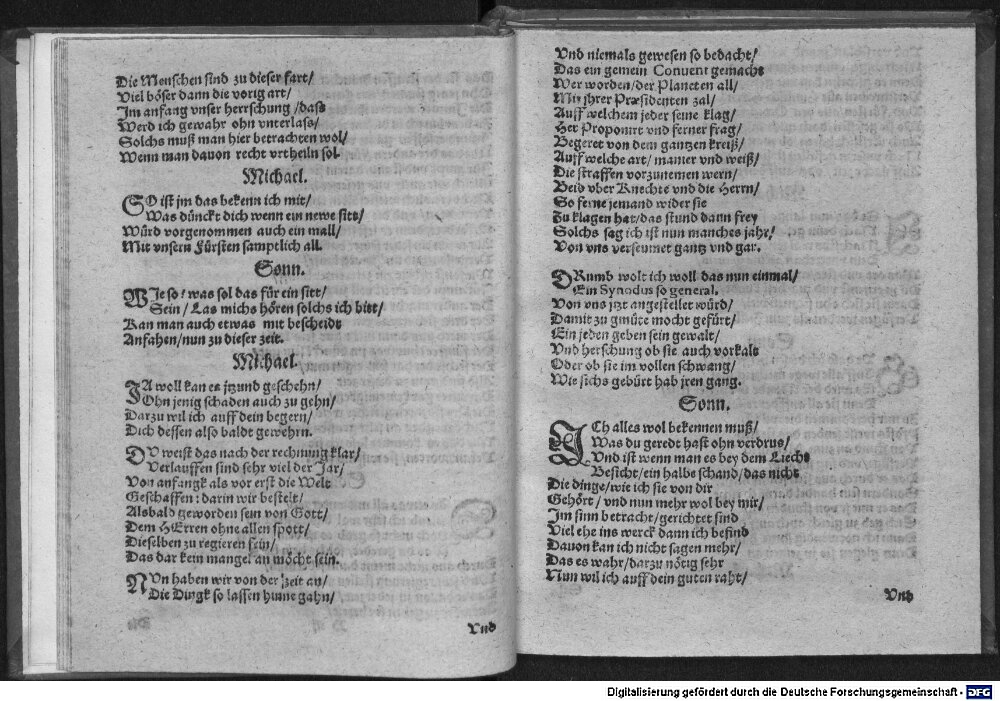 Die Menschen sind zu dieser fart/
Viel böser dann die vorig art/
Im anfang vnser herrschung /dass
Werd ich gewahr ohn vnterlass/
Solchs muß man hier betrachten wol/
Wenn man dauon recht vrtheiln sol.
Michael.
SO ist jm das bekenn ich mit/
Was dünckt dich wenn ein newe sitt/
Würd vorgenommen auch ein mall/
Mit vnsern Fürsten samptlich all.
Sonn.
WIe so? was sol das für ein sitt/
Sein / Las michs hören solchs ich bitt/
Kan man auch etwas mit bescheidt
Anfahen/nun zu dieser zeit.
Michael.
IA woll kan es jtzund geschehn/
Ohn jenig schaden auch zu gehn/
Darzu wil ich auff dein begern/
Dich dessen also baldt gewehrn.
DV weist das nach der rechnung klar/
Verlauffen sind sehr viel der Jar/
Von anfangk als vor erst die Welt
Geschaffen: darin wir bestelt/
Alsbald geworden sein von Gott/
Dem HErren ohne allen spott/
Dieselben zu regieren sein/
Das dar kein mangel an möcht sein.
NVn haben wir von der zeit an/
Die Dingk so lassen hinne gahn/
Vnd
Vnd niemals gewesen so bedacht/
Das ein gemein Conuent gemacht
Wer worden/der Planeten all/
Mit jhrer Præsidenten zal/
Auff welchem jeder seine klag/
Het Proponirt vnd ferner frag/
Begeret von dem gantzen kreiß/
Auff welche art/ manier vnd weiß/
Die straffen vorzunemen wern/
Beid vber Knechte vnd die Herrn/
So ferne jemand wider sie
Zu klagen hat/das stund dann frey
Solchs sag ich ist nun manches jahr/
Von vns verseumet gantz vnd gar.
DRumb wolt ich woll das nun einmal/
Ein Synodus so general.
Von vns jtzt angestellet würd/
Damit zu gmüte mocht gefürt/
Ein jeden geben sein gewalt/
Vnd herschung ob sie auch vorkalt
Oder ob sie im vollen schwang/
Wie sichs gebürt hab jren gang.
Sonn.
ICh alles wol bekennen muß/
Was du geredt hast ohn verdrus/
Vnd ist wenn man es bey dem Liecht
Besicht/ein halbe schand/das nicht
Die dinge/wie ich sie von dir
Gehört/ vnd nun mehr wol bey mir/
Im sinn betracht/gerichtet sind
Viel ehe ins werck dann ich befind
Dauon kan ich nicht sagen mehr/
Das es wahr/darzu nötig sehr
Nun wil ich auff dein guten raht/
Vnd
Digitalisierung gefördert durch die Deutsche Forschungsgemeinschaft - DFG